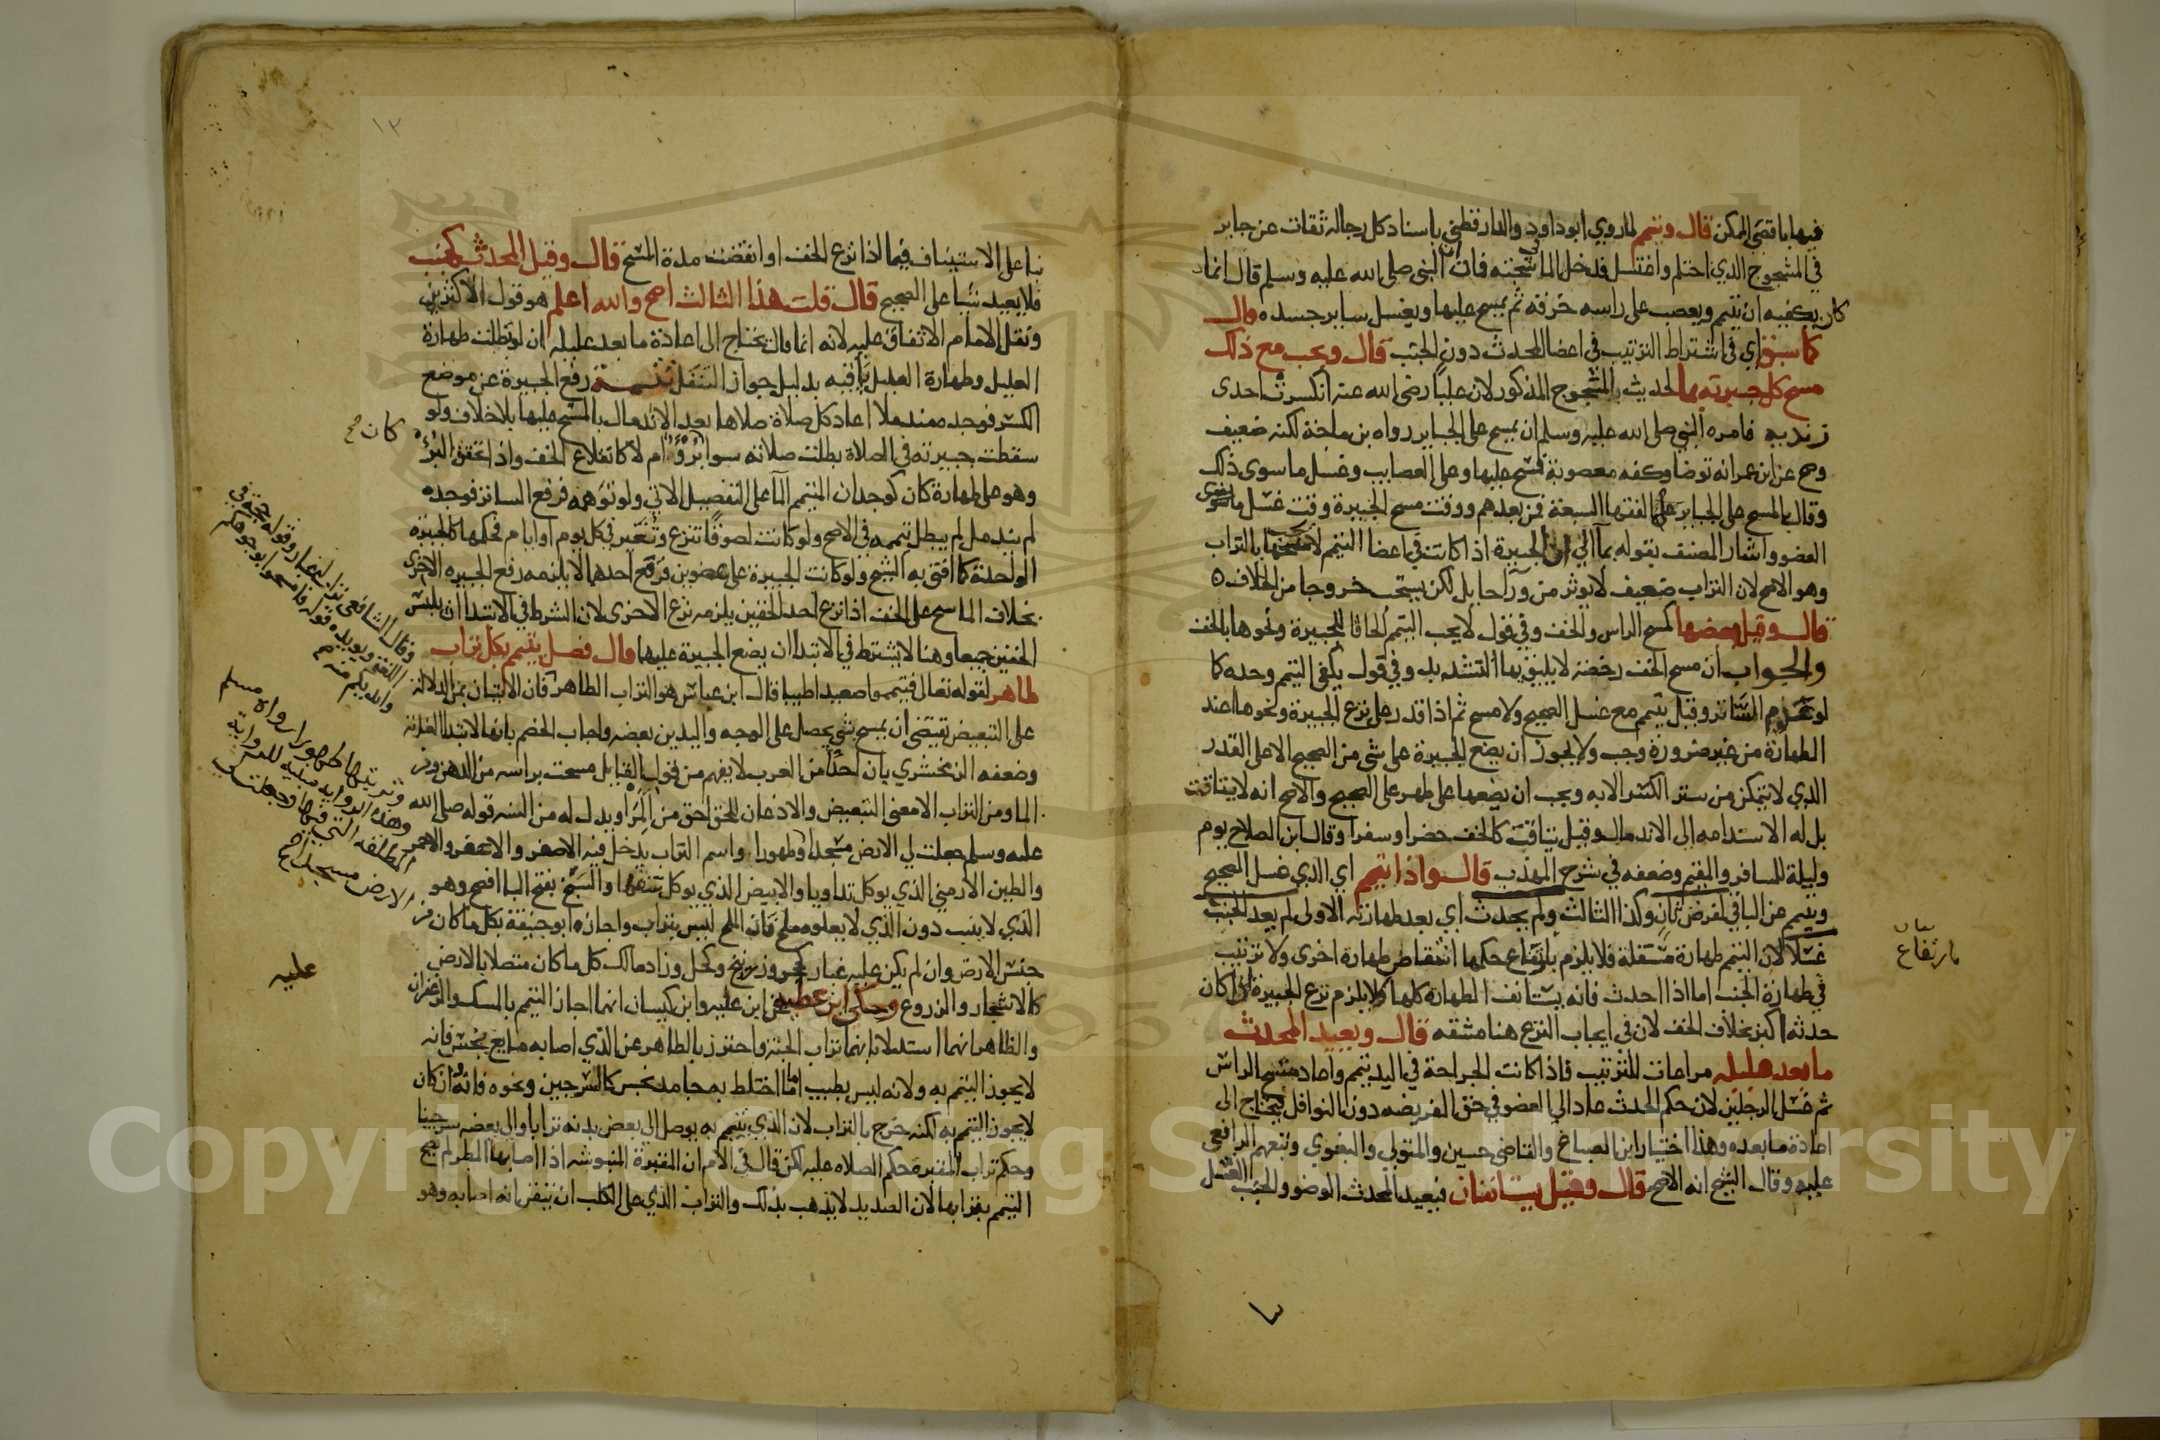 فيها باقصى الممكن قال وتيمم لما روي ابو داود والدارقطني باسناد كل رجاله ثقات عن جابر
في المشجوج الذي احتلم واغتسل فدخل الما شجته فمات ان النبي صلى الله عليه وسلم قال انما
كان يكفيه ان يتيمم ويعصب على راسه خرقة ثم يمسح عليها ويغسل ساير جسده قال
كما سبق اي في اشتراط الترتيب في اعضا المحدث دون الجنب قال ويجب مع ذلك
مسح كل جبيرته بما لحديث المشجوج المذكور لان عليا رضي الله عنه انكسرت احدى
زنديه فامره النبي صلى الله عليه وسلم ان يمسح على الجباير رواه بن ماجة لكنه ضعيف
وصح عن ابن عمر انه توضا وكفه معصوبة فمسح عليها وعلى العصايب وغسل ما سوى ذلك
وقال بالمسح على الجباير الفقها السبعة فمن بعدهم ووقت مسح الجبيرة وقت غسل
العضو واشار المصنف بقوله بما الى ان الجبيرة اذا كانت في اعضا التيمم لا بالتراب
وهو الاصح لان التراب ضعيف لا يوثر من ورا حايل لكن يستحب خروجا من الخلاف
قال وقيل بعضها كمسح الراس والخف وفي قول لا يجب التيمم الحاقا للجبيرة ونحوها بالخف
والجواب ان مسح الخف رخصة لا يليق بها التشديد وفي قول يكفي التيمم وحده كما
لو عدم الساتر وقيل يتيمم مع غسل الصحيح ولا مسح ثم اذا قدر على نزع الجبيرة ونحوها عند
الطهارة من غير ضرورة وجب ولا يجوز ان يضع الجبيرة على شي من الصحيح الا على القدر
الذي لا يتمكن من ستر الكسر الا به ويجب ان يضعها على طهر على الصحيح والاصح انه لا يتاقت
بل له الاستدامه إلى الاندمال وقيل يتاقت كالخف حضرا وسفرا وقال ابن الصلاح يوم
وليلة للمسافر والمقيم وضعفه في شرح المهذب قال واذا تيمم اي الذي غسل الصحيح
وتيمم عن الباقي لفرض ثان وكذا الثالث ولم يحدث اي بعد طهارته الاولى لم يعد الجنب
غسلا لان التيمم طهارة مستقلة فلا يلزم بارتفاع حكمها انتقاض طهارة اخرى ولا ترتيب
في طهارة الجنب اما اذا احدث فانه يستانف الطهارة كلها ولا يلزم نزع الجبيرة ان كان
حدثه اكبر بخلاف الخف لان في ايجاب النزع هنا مشقه قال ويعيد المحدث
ما بعد عليله مراعات للترتيب فاذا كانت الجراحة في اليد تيمم واعاد مسح الراس
ثم غسل الرجلين لان حكم الحدث عاد الى العضو في حق الفريضه دون النوافل فيحتاج الى
اعادة ما بعده وهذا اختيار ابن الصباغ والقاضي حسين والمتولي والبغوي وتبعهم الرافعي
عليه وقال الشيخ انه الاصح قال وقيل يستانفان فيعيد المحدث الوضو والجنب الغسل
بيان
بارتفاع
١٢
بنا على الاستيناف فيما اذا نزع الخف او انقضت مدة المسح قال وقيل المحدث كجنب
فلا يعيد شيا على الصحيح قال قلت هذا الثالث اصح والله اعلم هو قول الاكثرين
ونقل الامام الاتفاق عليه لانه انما كان يحتاج الى اعادة ما بعد عليله ان لو بطلت طهارة
العليل وطهارة العليل باقيه بدليل جواز التنفل تتمة رفع الجبيرة عن موضع
الكسر فوجده مندملا اعاد كل صلاة صلاها بعد الاندمال بالمسح عليها بلا خلاف ولو
سقطت جبيرته في الصلاة بطلت صلاته سوا برؤ ام لا كانقلاع الخف واذا تحقق البرء
وهو على طهارة كان كوجدان المتيمم الما على التفصيل الاتي ولو توهمه فرفع الساتر فوجده
لم يندمل لم يبطل تيممه في الاصح ولو كانت لصوقا تنزع وتغير في كل يوم او ايام فحكمها كالجبيرة
الواحدة كما افتى به الشيخ ولو كانت الجبيرة على عضوين فرفع احدهما لا يلزمه رفع الجبيره الاخرى
بخلاف الماسح على الخف اذا نزع احد الخفين يلزمه نزع الاخرى لان الشرط في الابتدا ان يلبس
الخفين جميعا وهنا لا يشترط في الابتدا ان يضع الجبيرة عليهما قال فصل يتيمم بكل تراب
طاهر لقوله تعالى فتيمموا صعيدا طيبا قال ابن عباس هو التراب الطاهر فان الاتيان بمن الدالة
على التبعيض تقتضى ان يمسح بشي يحصل على الوجه واليدين بعضه واجاب الخصم بانها لابتدا الغاية
وضعفه الزمخشري بان احدا من العرب لا يفهم من قول القايل مسحت براسه من الدهن ومن
الما ومن التراب الا معنى التبعيض والاذعان للحق احق من المرا ويدل له من السنه قوله صلى الله
عليه وسلم جعلت لي الارض مسجدا وطهورا واسم التراب يدخل فيه الاصفر والاعفر والاحمر
والطين الارمني الذي يوكل تداويا والابيض الذي يوكل تنقها والسبخ بفتح البا افصح وهو
الذي لا ينبت دون الذي لا يعلوه ملح فان الملح ليس بتراب واجازه ابو حنيفة بكل ما كان من
جنس الارض وان لم يكن عليه غبار كحجر وزرنيخ وكحل وزاد مالك كل ما كان متصلا بالارض
كالاشجار والزروع وحكى ابن عطيه عن ابن عليه وابن كيسان انهما اجازا التيمم بالمسك والزعفران
والظاهر انهما استدلا بانهما تراب الجنة واحترز بالطاهر عن الذي اصابه مايع نجس فانه
لا يجوز التيمم به ولانه ليس بطيب اما اختلط به جامد نجس كالسرجين ونحوه فانه وان كان
لا يجوز التيمم به لكنه خرج بالتراب لان الذي يتيمم به يوصل الى بعض بدنه ترابا والى بعضه سرجينا
وحكم تراب المقبرة حكم الصلاه عليه لكن قال في الام ان المقبرة المنبوشه اذا اصابها المطر لم يصح
التيمم بترابها لان الصديد لا يذهب بذلك والتراب الذي على الكلب ان تيقن انه اصابه وهو
كان صح
وقال الشافعي تراب له غبار وقوله حجة في
اللغة ويويده قوله فامسحوا بوجوهكم
وايديكم منه م
وتربتها طهورا رواه مسلم
وهذه الرواية مبينة للرواية
المطلقة التي فيها وجعلت لي
الارض مسجدا
عليه